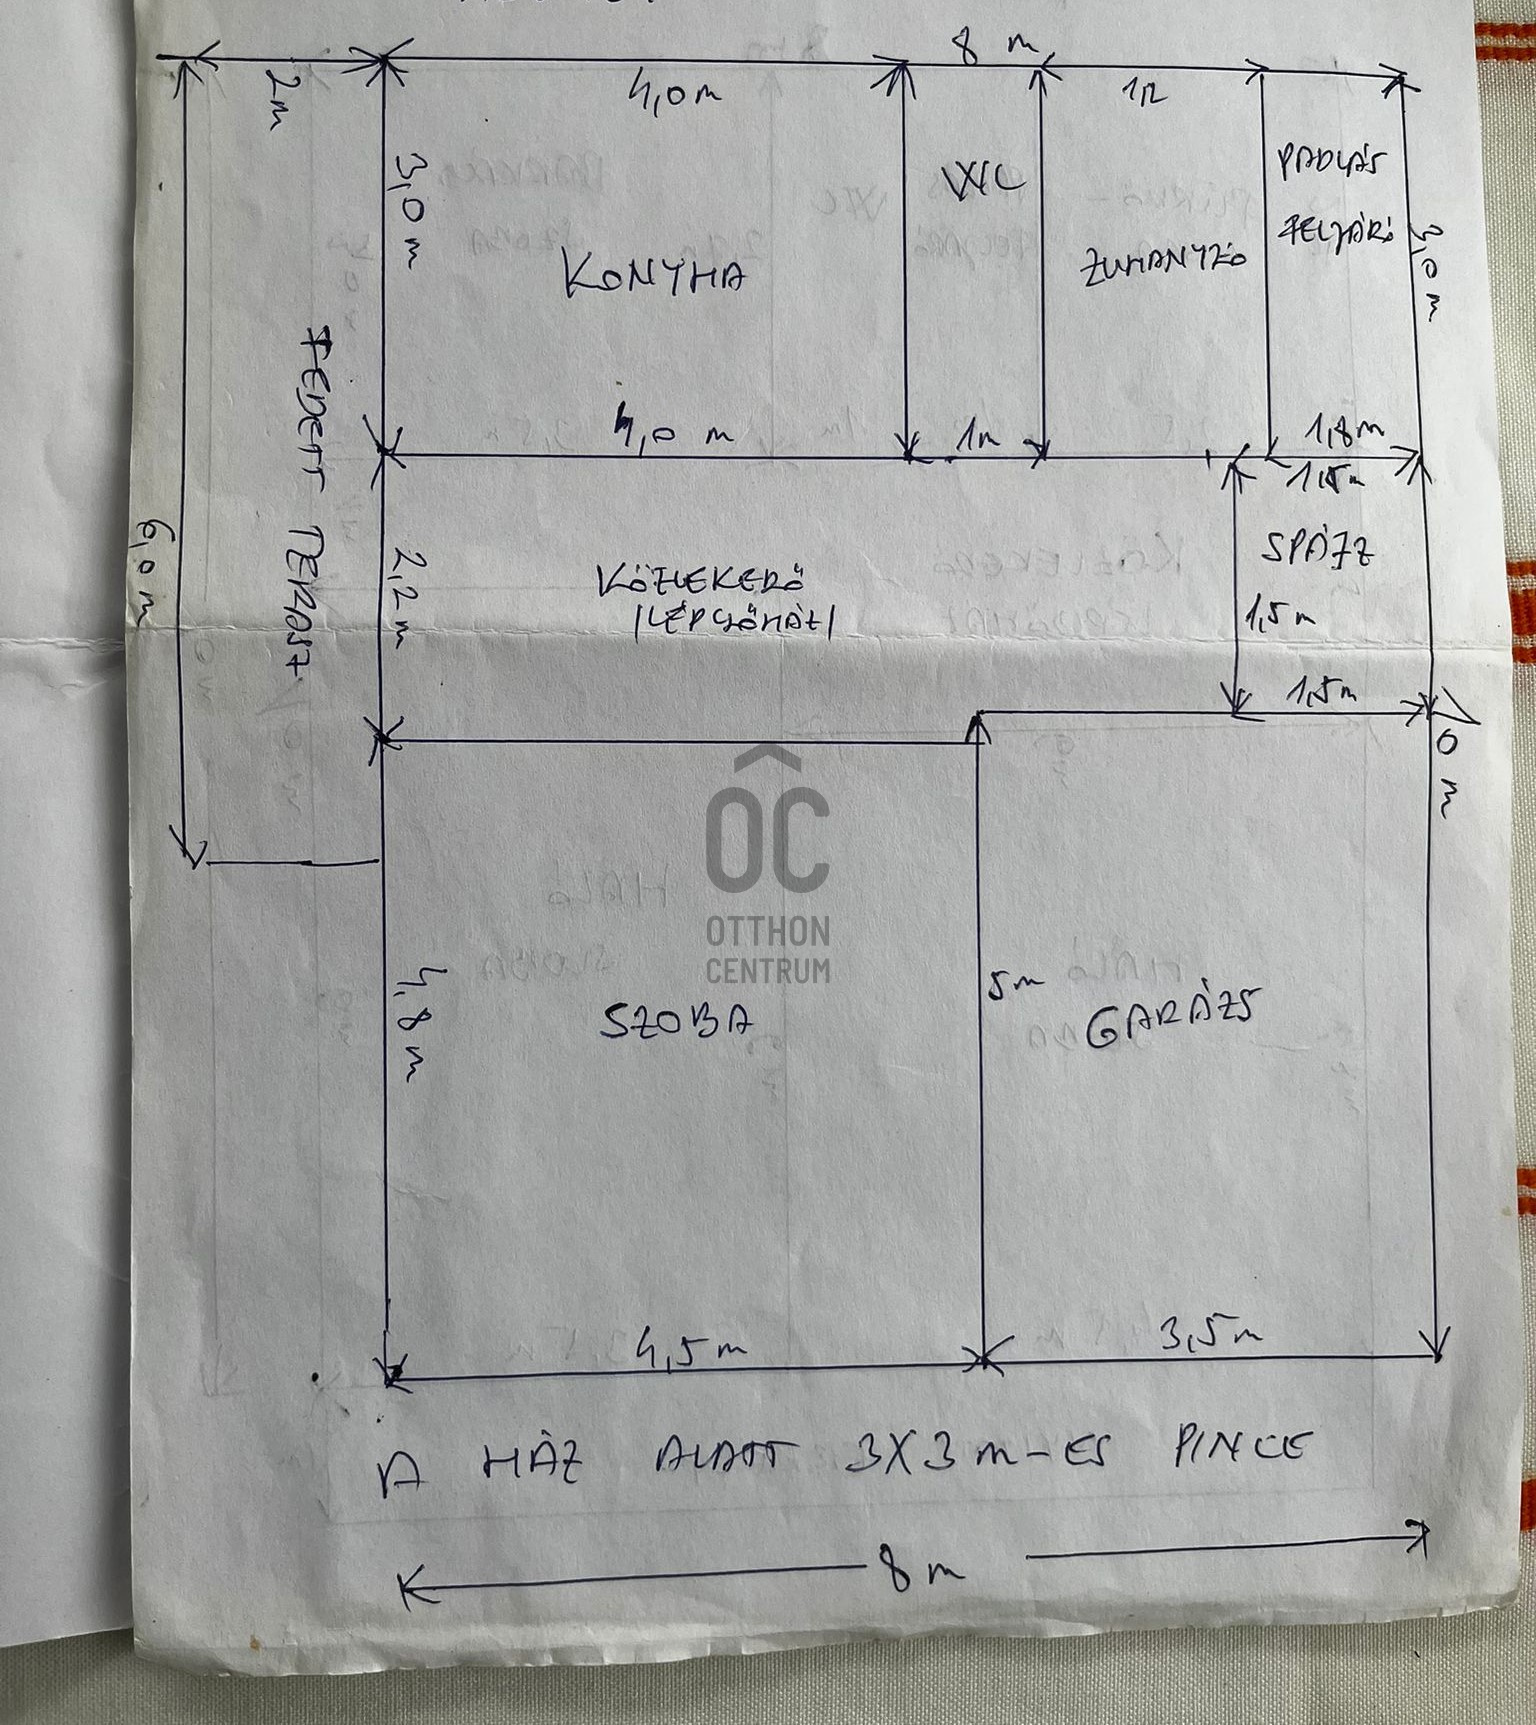 8 m
2m
4,0 m
1,2
3,0 m
KONYHA
WC
ZUHANYZÓ
PADLÁS
FELJÁRÓ
3,0 m
4,0 m
1m
1,8m
1,5m
FEDETT TERASZ
6,0 m
2,2 m
KÖZLEKEDŐ
/LÉPCSŐHÁZ/
SPÁJZ
1,5m
1,5m
10 m
ÔC
OTTHON
CENTRUM
4,8 m
SZOBA
5m
GARÁZS
4,5 m
3,5 m
A HÁZ ALATT 3X3 m-ES PINCE
8 m